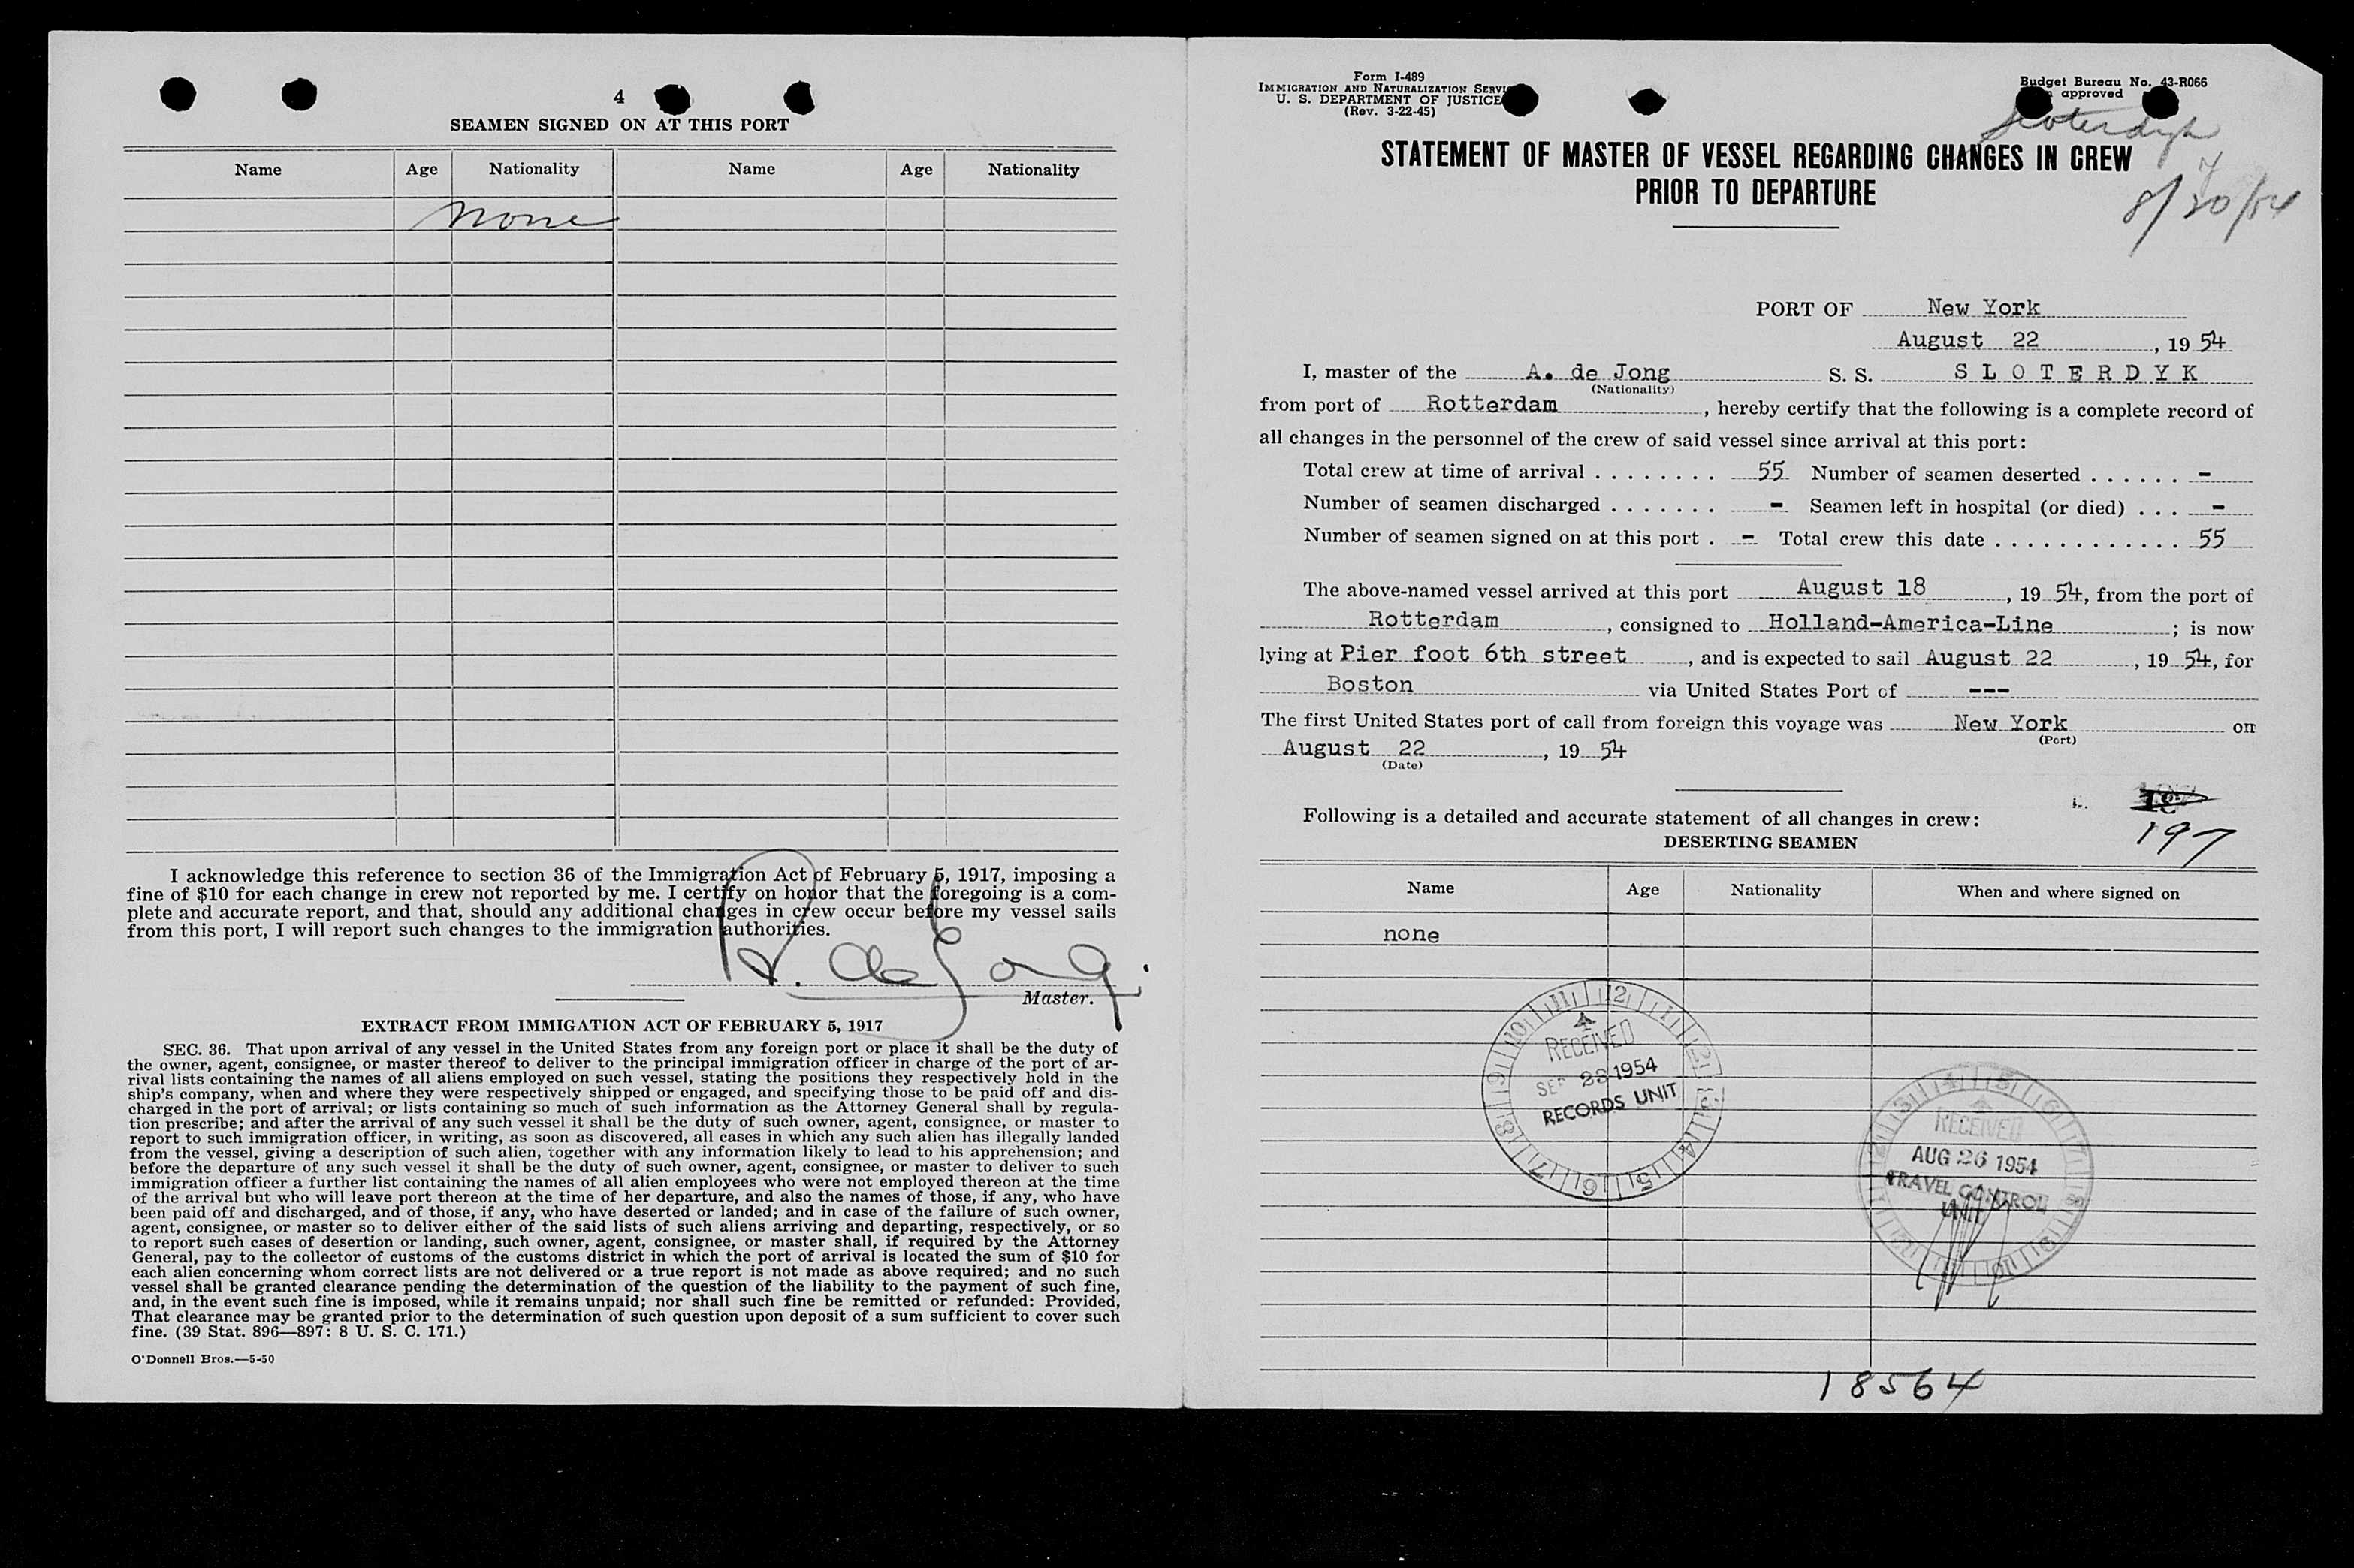 4
SEAMEN SIGNED ON AT THIS PORT
Name Age Nationality Name Age Nationality
None
I acknowledge this reference to section 36 of the Immigration Act of February 5, 1917, imposing a
fine of $10 for each change in crew not reported by me. I certify on honor that the foregoing is a com-
plete and accurate report, and that, should any additional changes in crew occur before my vessel sails
from this port, I will report such changes to the immigration authorities.
A. de Jong.
Master.
EXTRACT FROM IMMIGATION ACT OF FEBRUARY 5, 1917
SEC. 36. That upon arrival of any vessel in the United States from any foreign port or place it shall be the duty of
the owner, agent, consignee, or master thereof to deliver to the principal immigration officer in charge of the port of ar-
rival lists containing the names of all aliens employed on such vessel, stating the positions they respectively hold in the
ship's company, when and where they were respectively shipped or engaged, and specifying those to be paid off and dis-
charged in the port of arrival; or lists containing so much of such information as the Attorney General shall by regula-
tion prescribe; and after the arrival of any such vessel it shall be the duty of such owner, agent, consignee, or master to
report to such immigration officer, in writing, as soon as discovered, all cases in which any such alien has illegally landed
from the vessel, giving a description of such alien, together with any information likely to lead to his apprehension; and
before the departure of any such vessel it shall be the duty of such owner, agent, consignee, or master to deliver to such
immigration officer a further list containing the names of all alien employees who were not employed thereon at the time
of the arrival but who will leave port thereon at the time of her departure, and also the names of those, if any, who have
been paid off and discharged, and of those, if any, who have deserted or landed; and in case of the failure of such owner,
agent, consignee, or master so to deliver either of the said lists of such aliens arriving and departing, respectively, or so
to report such cases of desertion or landing, such owner, agent, consignee, or master shall, if required by the Attorney
General, pay to the collector of customs of the customs district in which the port of arrival is located the sum of $10 for
each alien concerning whom correct lists are not delivered or a true report is not made as above required; and no such
vessel shall be granted clearance pending the determination of the question of the liability to the payment of such fine,
and, in the event such fine is imposed, while it remains unpaid; nor shall such fine be remitted or refunded: Provided,
That clearance may be granted prior to the determination of such question upon deposit of a sum sufficient to cover such
fine. (39 Stat. 896—897: 8 U. S. C. 171.)
O'Donnell Bros.—5-50
Form I-489
IMMIGRATION AND NATURALIZATION
U. S. DEPARTMENT OF JUSTICE
(Rev. 3-22-45)
Budget Bureau No. 43-R066
approved
Sloterdyk
8/20/54
STATEMENT OF MASTER OF VESSEL REGARDING CHANGES IN CREW
PRIOR TO DEPARTURE
PORT OF New York
August 22, 19 54
I, master of the A. de Jong S. S. SLOTERDYK
(Nationality)
from port of Rotterdam, hereby certify that the following is a complete record of
all changes in the personnel of the crew of said vessel since arrival at this port:
Total crew at time of arrival . . . . . . . . 55 Number of seamen deserted . . . . . . -
Number of seamen discharged . . . . . . . - Seamen left in hospital (or died) . . . -
Number of seamen signed on at this port . - Total crew this date . . . . . . . . . . . . 55
The above-named vessel arrived at this port August 18, 19 54, from the port of
Rotterdam, consigned to Holland-America-Line; is now
lying at Pier foot 6th street, and is expected to sail August 22, 19 54, for
Boston via United States Port of ---
The first United States port of call from foreign this voyage was New York on
(Port)
August 22, 19 54
(Date)
197
Following is a detailed and accurate statement of all changes in crew:
DESERTING SEAMEN
Name Age Nationality When and where signed on
none
RECEIVED
SEP 23 1954
RECORDS UNIT
RECEIVED
AUG 26 1954
TRAVEL CONTROL
UNIT
18564